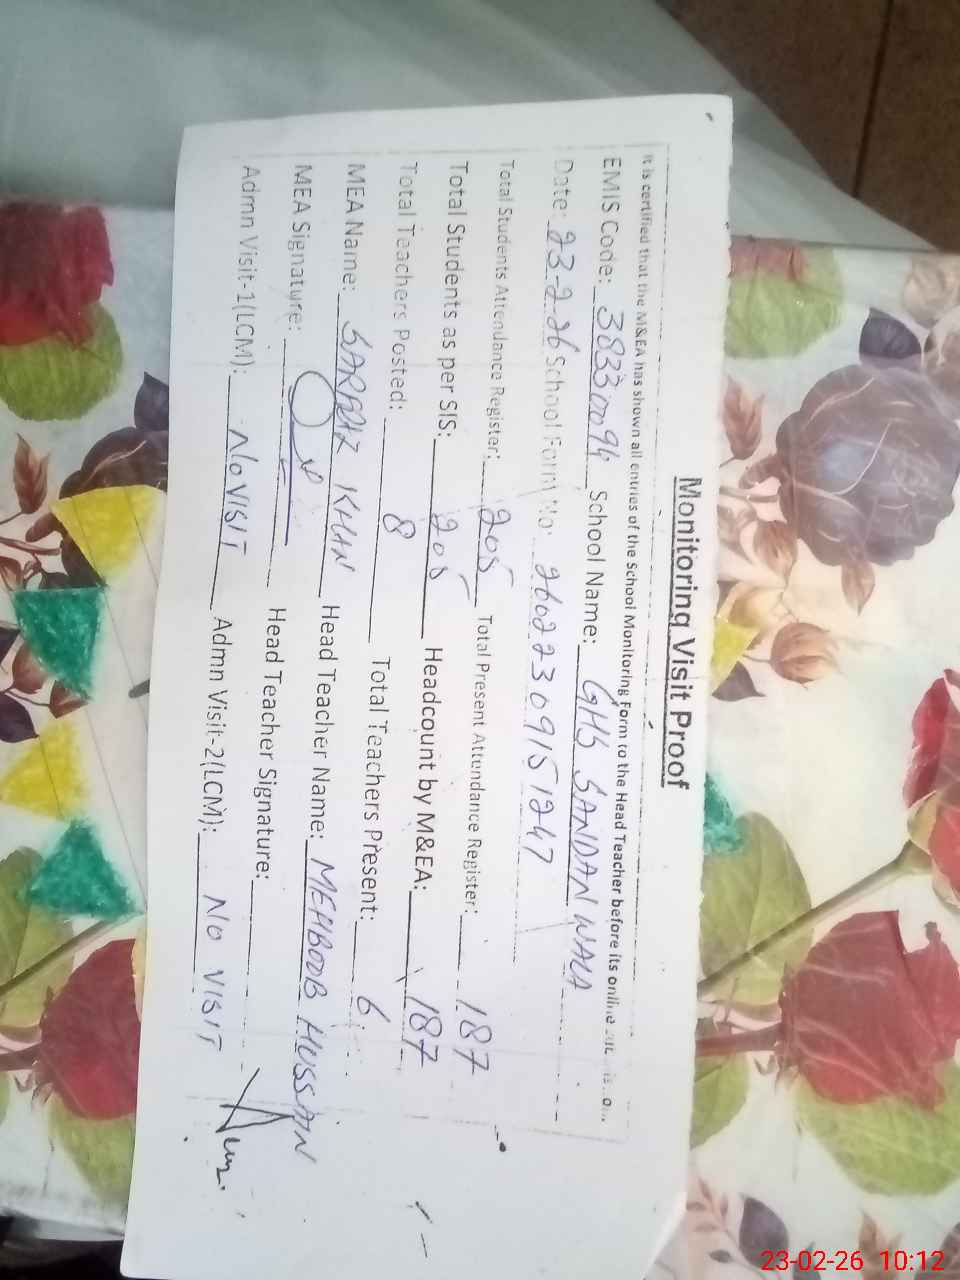 Monitoring Visit Proof
It is certified that the M&EA has shown all entries of the School Monitoring Form to the Head Teacher before its online
EMIS Code: 38330094 School Name: GHS SANDANWALA
Date: 23-2-26 School Form No: 26022309151247
Total Students Attendance Register: 205 Total Present Attendance Register: 187
Total Students as per SIS: 205 Headcount by M&EA: 187
Total Teachers Posted: 8 Total Teachers Present: 6
MEA Name: SARDAR KHAN Head Teacher Name: MEHBOOB HUSSAN
MEA Signature: Head Teacher Signature:
Admn Visit-1(LCM): NO VISIT Admn Visit-2(LCM): NO VISIT
23-02-26 10:12